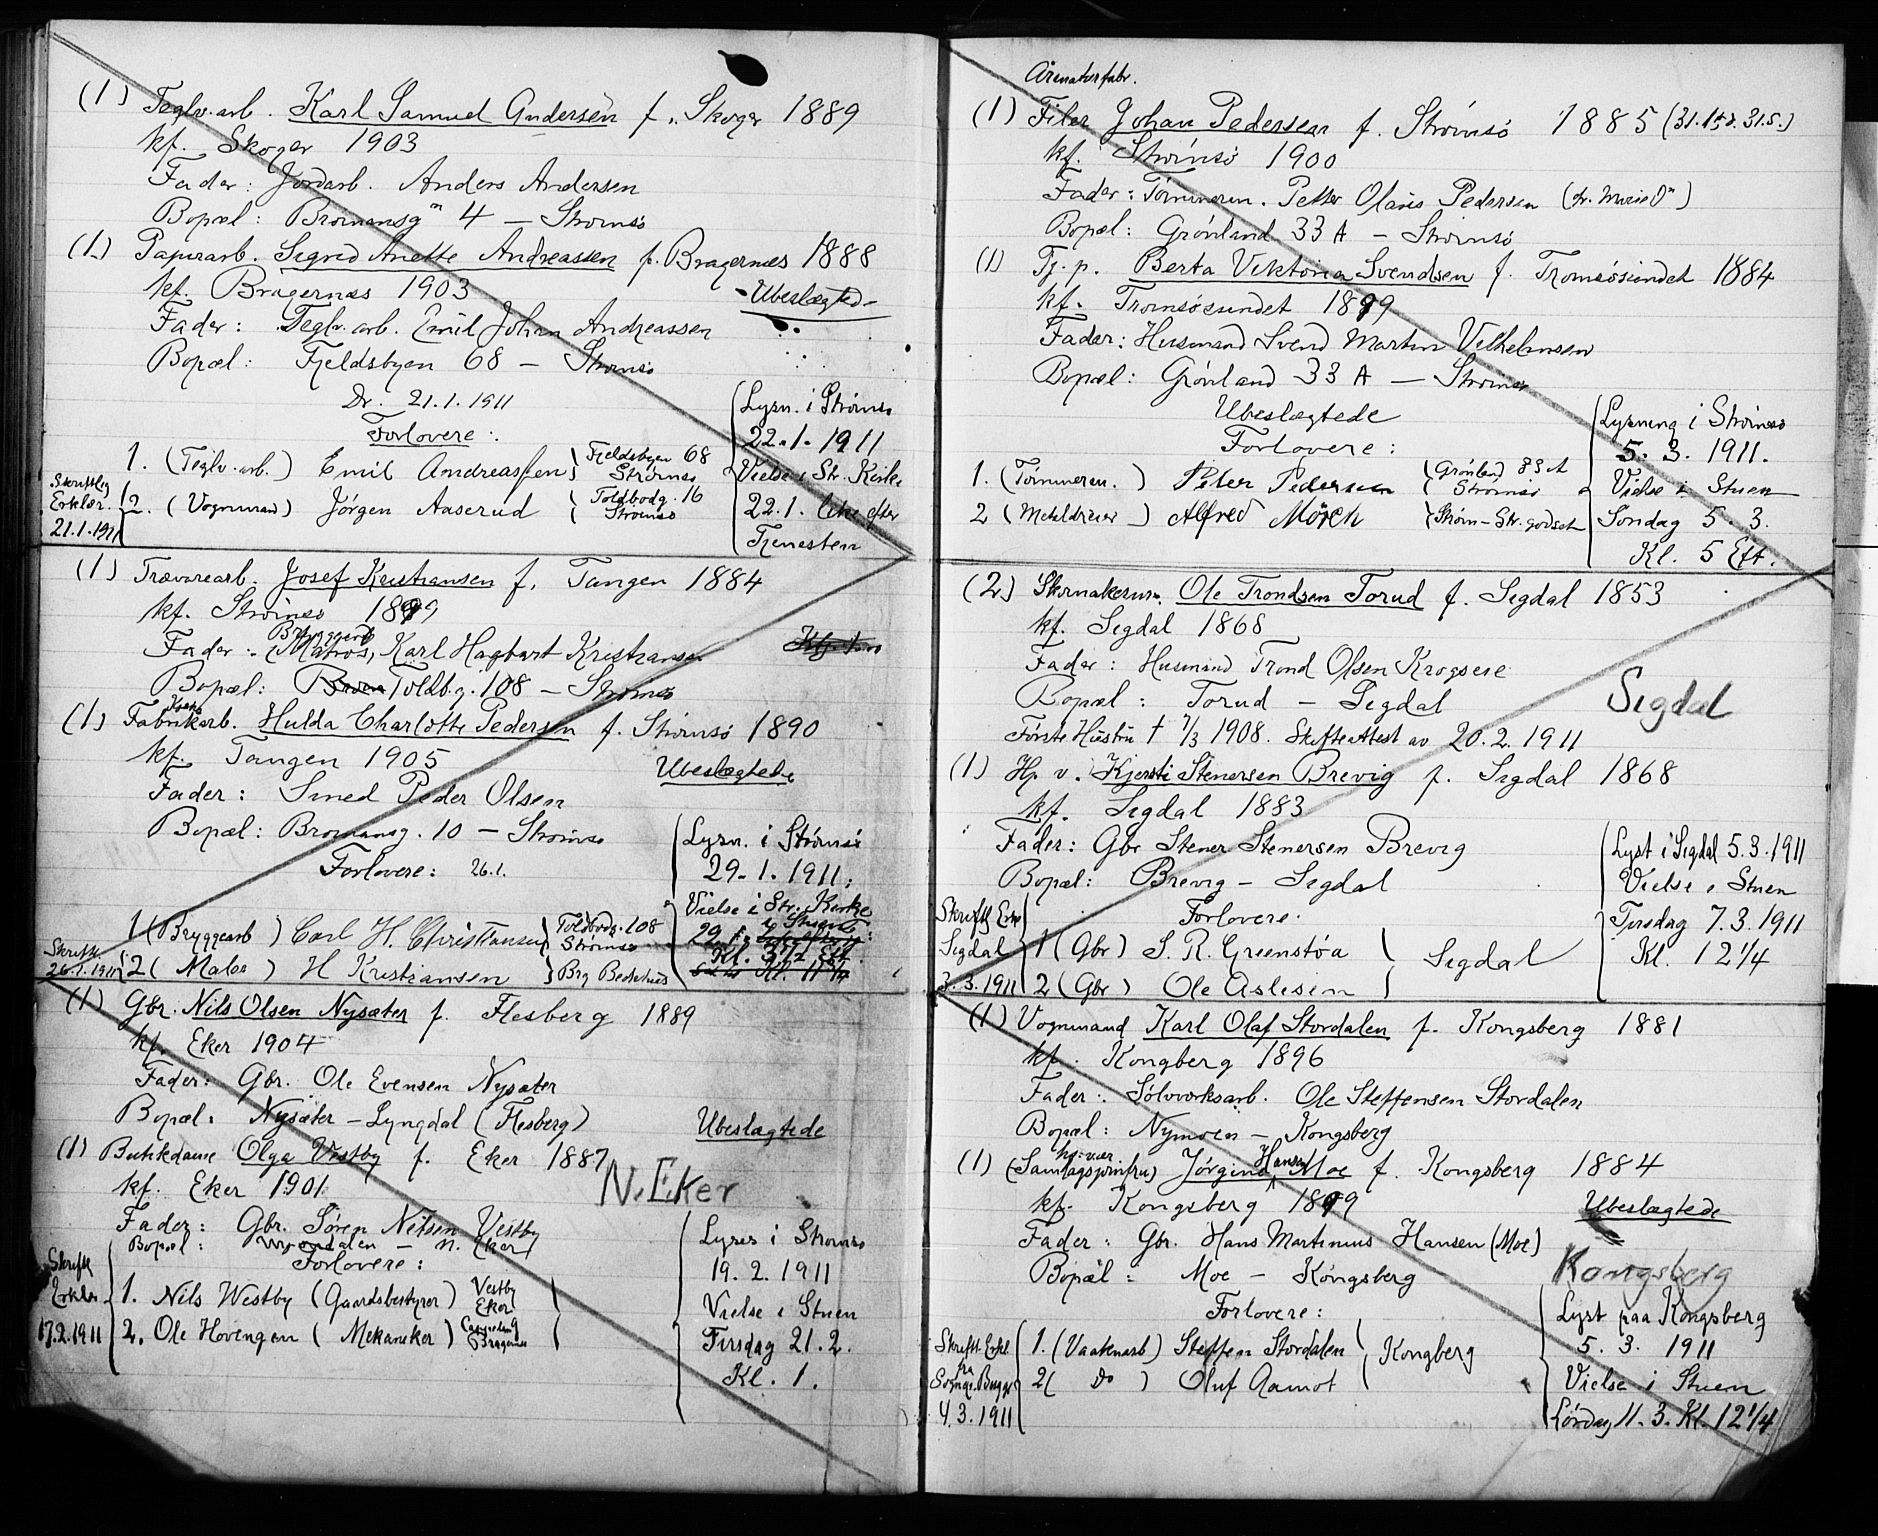 (1) Teglv.arb. Karl Samuel Andersen f. Skoger 1889
kf. Skoger 1903
Fader: Jordarb. Anders Andersen
Bopæl: Bromansg. 4 – Strømsø
(1) Papirarb. Sigrid Anette Andreassen f. Bragernes 1888
kf. Bragernæs 1903
Ubeslægted
Fader: Teglv.arb. Emil Johan Andreassen
Bopæl: Fjeldsbyen 68 – Strømsø
21.1.1911
Forlovere:
1. (Teglv.arb.) Emil Andreassen Fjeldsbyen 68 Strømsø
2. (Vognmand) Jørgen Aaserud Toldbodg. 16 Strømsø
Skriftlig
Erklær.
21.1.1911
Lysn. i Strømsø
22.1.1911
Vielse i Str. Kirke
22.1. like efter
Tjenesten
(1) Trævarearb. Josef Kristiansen f. Tangen 1884
kf. Strømsø 1899
Fader: Bryggearb. Matros, Karl Hagbart Kristiansen
Bopæl: Toldb.g. 108 – Strømsø
(1) Fabrikarb. Hulda Charlotte Pedersen f. Strømsø 1890
kf. Tangen 1905
Ubeslægtede
Fader: Smed Peder Olsen
Bopæl: Bromansg. 10 – Strømsø
Forlovere: 26.1.
1 (Bryggearb) Carl H. Christiansen Toldbodg. 108 Strømsø
2 (Maler) H Kristiansen Brg Bedehus
Skriftl.
26.1.1911
Lysn. i Strømsø
29.1.1911.
Vielse i Str. Kirke
(1) Gbr. Nils Olsen Nysæter f. Flesberg 1889
kf. Eker 1904
Fader: Gbr. Ole Evensen Nysæter
Bopæl: Nysæter – Lyngdal (Flesberg)
Ubeslægtede
(1) Butikdame Olga Vestby f. Eker 1887
N. Eker
kf. Eker 1901
Fader: Gbr. Søren Nilsen Vestby
Bopæl: – N. Eker
Forlovere:
1. Nils Westby (Gaardsbestyrer) Vestby Eker
2. Ole Hovengen (Mekaniker)
Skriftl
Erklær.
17.2.1911
Lyses i Strømsø
19.2.1911
Vielse i Stuen
Tirsdag 21.2.
Kl. 1.
Armaturfabr.
(1) Filer Johan Pedersen f. Strømsø 1885
kf. Strømsø 1900
Fader: Tømmerm. Petter Olaus Pedersen
Bopæl: Grønland 33 A – Strømsø
(1) Tj.p. Berta Viktoria Svendsen f. Tromsøsundet 1884
kf. Tromsøsundet 1899
Fader: Husmand Svend Martin Vilhelmsen
Bopæl: Grønland 33 A – Strømsø
Ubeslægtede
Forlovere:
1. (Tømmerm.) Peter Pedersen Grønland 33 A Strømsø
2 (Metaldreier) Alfred Mörch Strøm – Str. godset
Lysning i Strømsø
5.3.1911.
Vielse i Stuen
Søndag 5.3.
Kl. 5 Eft.
(2) Skomakerm. Ole Trondsen Torud f. Sigdal 1853
kf. Sigdal 1868
Fader: Husmand Trond Olsen
Bopæl: Torud – Sigdal
Sigdal
Første Hustru † 7/3 1908. Skifteattest av 20.2.1911
(1) Hp v. Kjersti Stenersen Brevig f. Sigdal 1868
kf. Sigdal 1883
Fader: Gbr Stener Stenersen Brevig
Bopæl: Brevig – Sigdal
Forlovere.
1 (Gbr) S. R. Greenstøa
2 (Gbr) Ole Aslesen
Sigdal
Skriftl. Erkl
Sigdal
3.3.1911
Lyst i Sigdal 5.3.1911
Vielse i Stuen
Tirsdag 7.3.1911
Kl. 12 1/4
(1) Vognmand Karl Olaf Stordalen f. Kongsberg 1881
kf. Kongberg 1896
Fader: Sølvverksarb. Ole Steffensen Stordalen
Bopæl: Nymoen – Kongsberg
(1) Jørgine Hansen Moe f. Kongsberg 1884
kf. Kongsberg 1899
Ubeslægtede
Fader: Gbr. Hans Martinius Hansen (Moe)
Bopæl: Moe – Kongsberg
Kongsberg
Forlovere:
1. (Vaabenarb) Steffen Stordalen
2 ( Do ) Oluf Aamot
Kongberg
Skriftl. Erkl
fra
Sognepr. Bugge
4.3.1911
Lyst paa Kongsberg
5.3.1911
Vielse i Stuen
Lørdag 11.3. Kl. 12 1/4